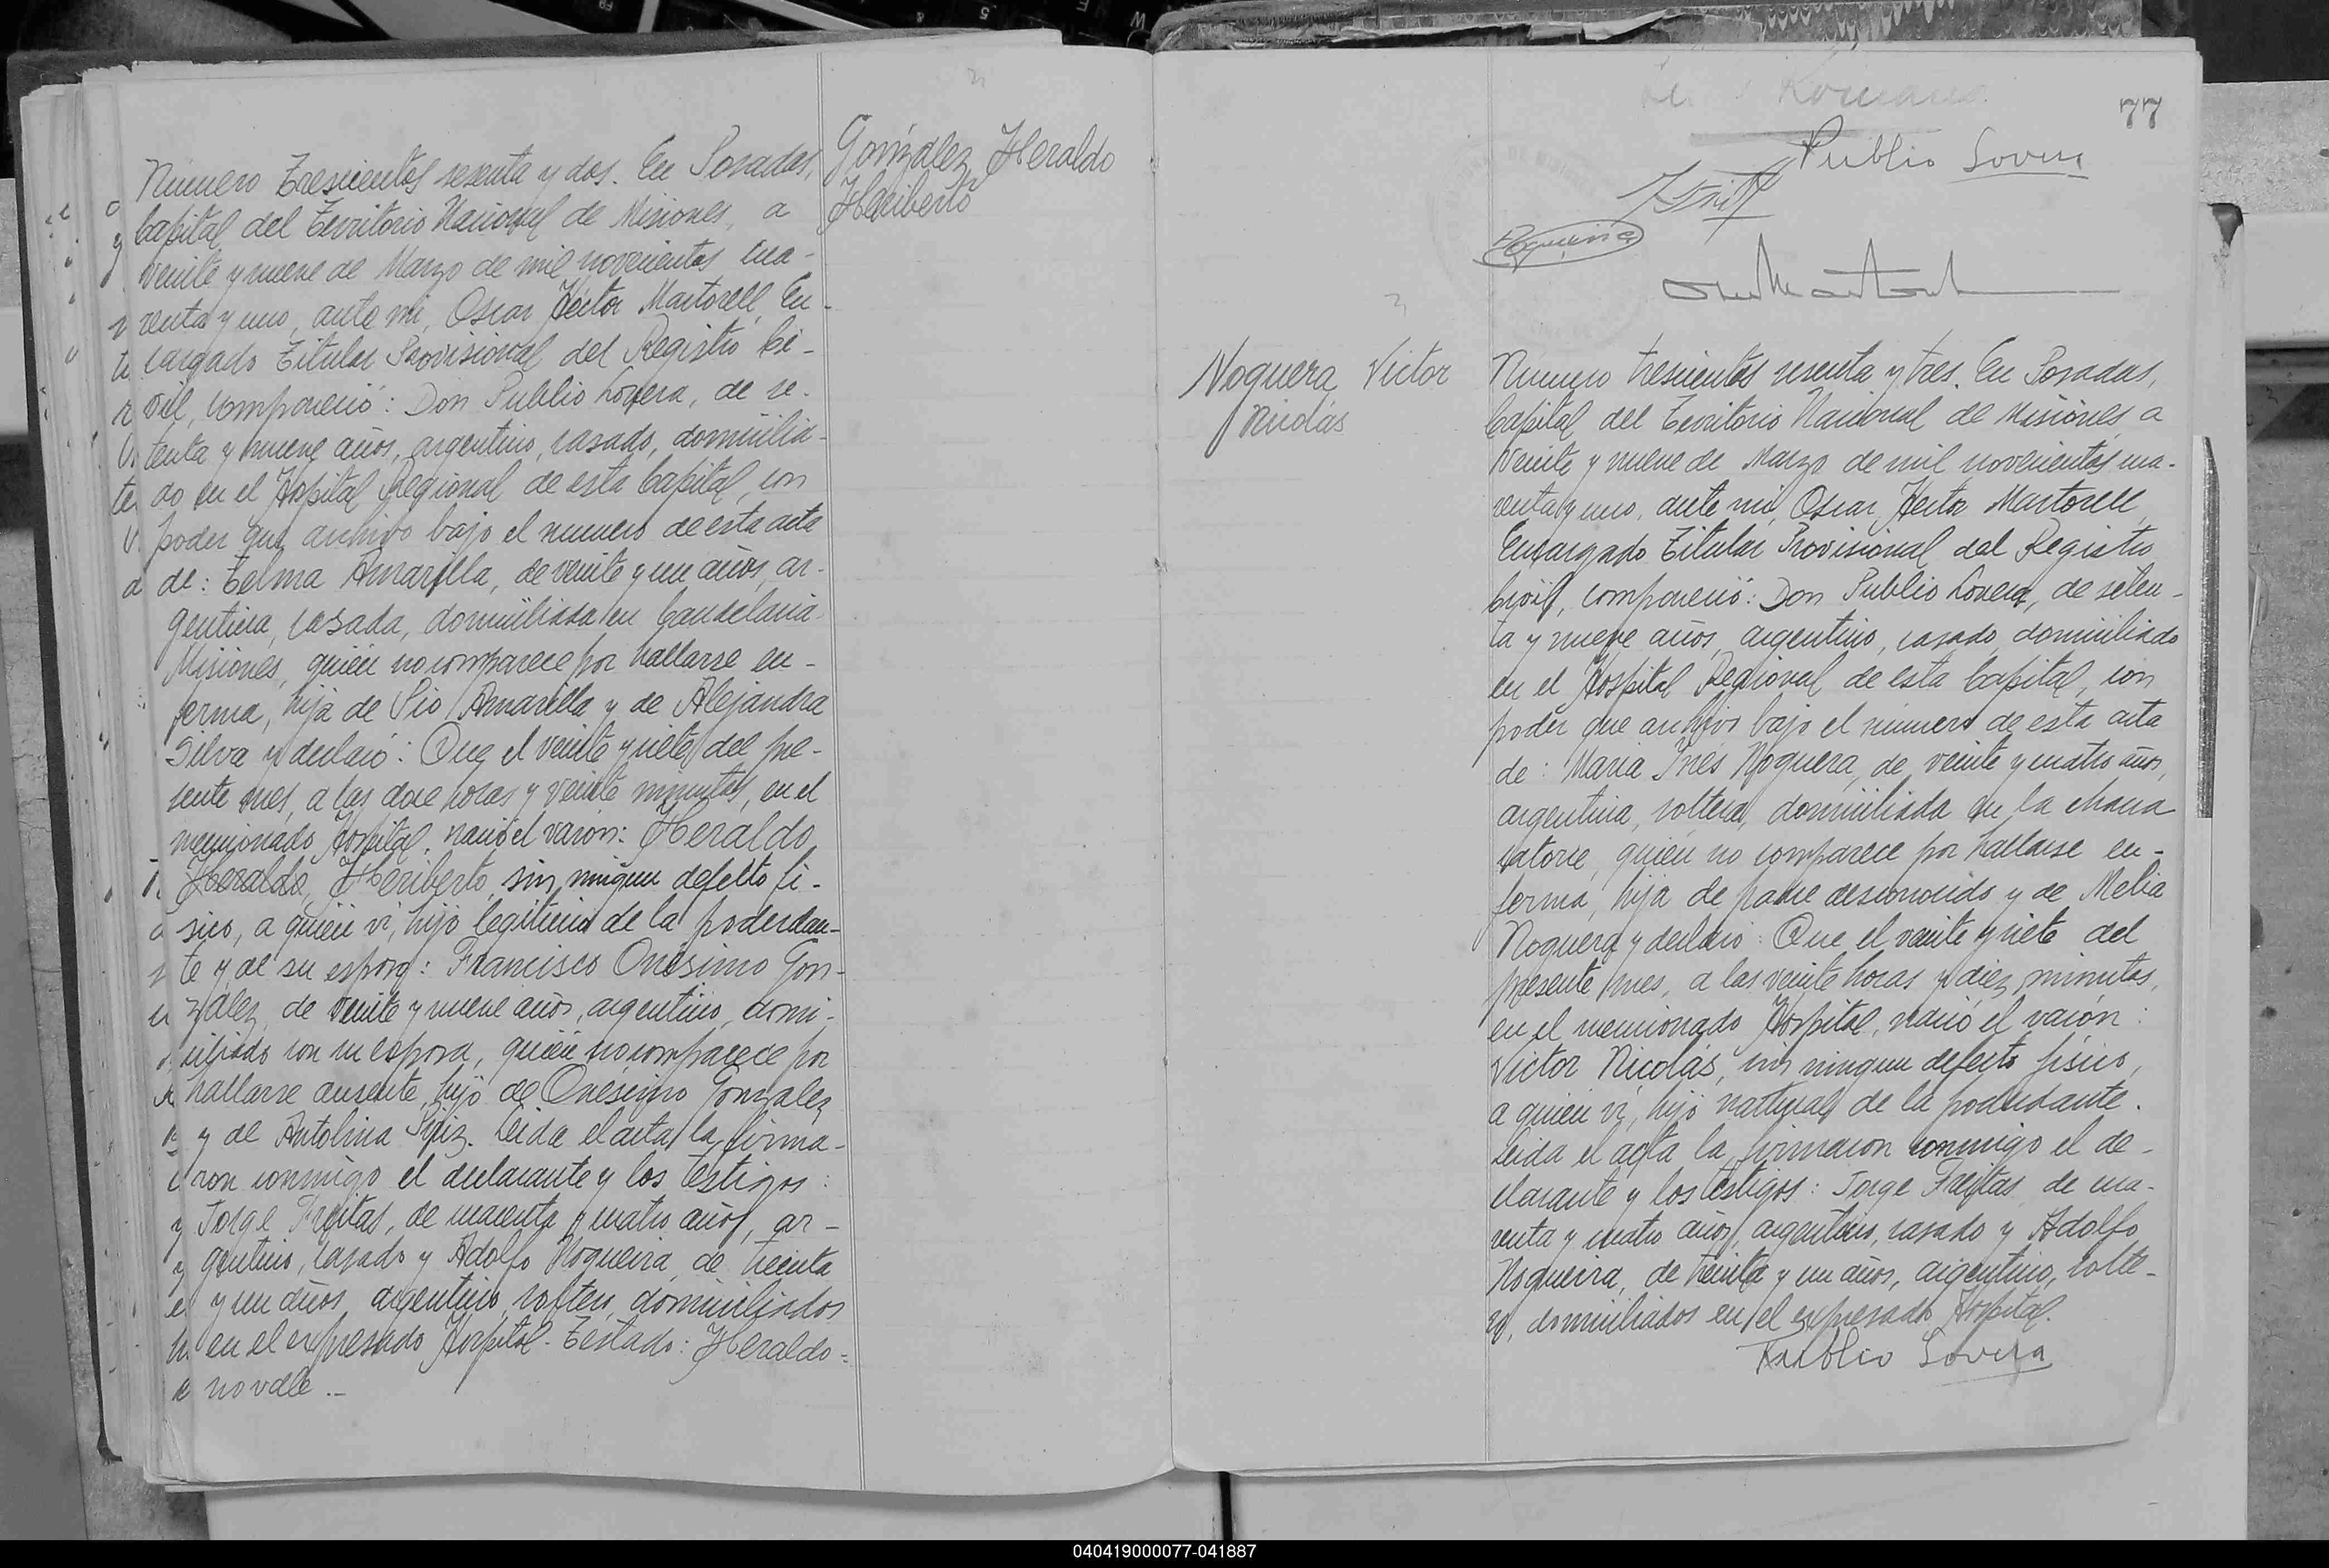 González Heraldo
Heriberto
Número Trescientos sesenta y dos. En Posadas,
Capital del Territorio Nacional de Misiones, a
veinte y nueve de Marzo de mil novecientos cua-
renta y uno, ante mi, Oscar Héctor Martorell, En-
cargado Titular Provisional del Registro Ci-
vil, compareció: Don Publio Lovera, de se-
tenta y nueve años, argentino, casado, domicilia-
do en el Hospital Regional de esta Capital, con
poder que archivo bajo el numero de esta acta
de: Telma Amarilla, de veinte y un años, ar-
gentina, casada, domiciliada en Candelaria
Misiones, quién no comparece por hallarse en-
ferma, hija de Pio Amarilla y de Alejandra
Silva y declaró: Que el veinte y siete del pre-
sente mes, a las doce horas y veinte minutos, en el
mencionado Hospital, nació el varón: Heraldo
Heraldo, Heriberto, sin ningun defecto fi-
sico, a quién vi, hijo legitimo de la poderdan-
te y de su esposo: Francisco Onésimo Gon-
zález, de veinte y nueve años, argentino, domi-
ciliado con su esposa, quién no comparece por
hallarse ausente, hijo de Onésimo González
y de Antolina Ruiz. Leida el acta la firma-
ron conmigo el declarante y los testigos:
Jorge Freitas, de cuarenta y cuatro años, ar-
gentino, casado y Adolfo Nogueira, de treinta
y un años, argentino, soltero, domiciliados
en el expresado Hospital. Testado: Heraldo=
no vale.-
77
Publio Lovera
Noguera Victor
Nicolás
Número trescientos sesenta y tres. En Posadas,
Capital del Territorio Nacional de Misiones, a
veinte y nueve de Marzo de mil novecientos cua-
renta y uno, ante mi, Oscar Héctor Martorell,
Encargado Titular Provisional del Registro
Civil, compareció: Don Publio Lovera, de seten-
ta y nueve años, argentino, casado, domiciliado
en el Hospital Regional de esta Capital, con
poder que archivo bajo el número de esta acta
de: Maria Inés Noguera, de veinte y cuatro años,
argentina, soltera, domiciliada en la chacra
catorce, quién no comparece por hallarse en-
ferma, hija de padre desconocido y de Melia
Noguera y declaró: Que el veinte y siete del
presente mes, a las veinte horas y diez minutos,
en el mencionado Hospital, nació el varón:
Victor Nicolás, sin ningun defecto fisico,
a quién vi, hijo natural de la poderdante.
Leida el acta la firmaron conmigo el de-
clarante y los testigos: Jorge Freitas, de cua-
renta y cuatro años, argentino, casado y Adolfo
Nogueira, de treinta y un años, argentino, solte-
ro, domiciliados en el expresado Hospital.
Publio Lovera
040419000077-041887